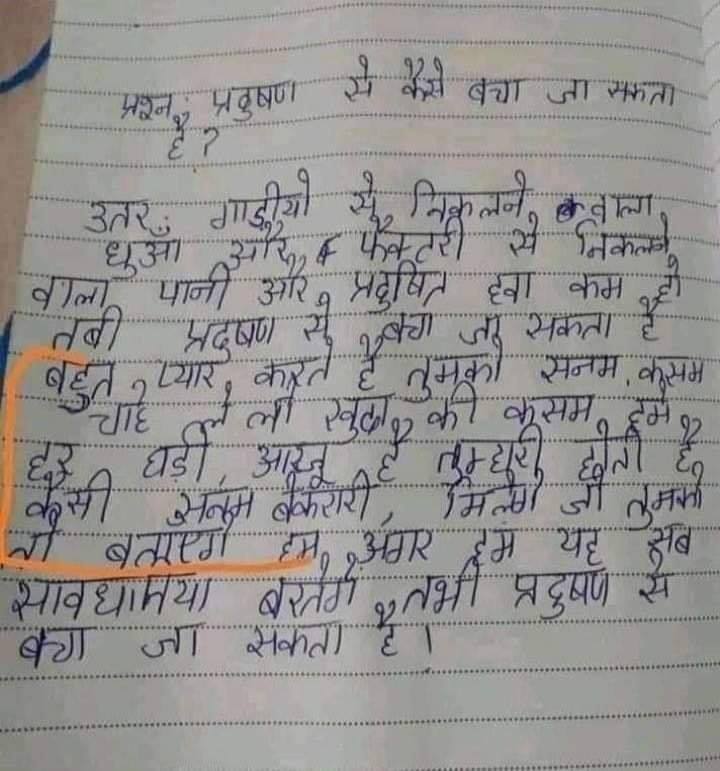 प्रश्न: प्रदुषण से कैसे बचा जा सकता
है ?
उतर: गाड़ीयो से निकलने वाला
धुआँ और फैक्टरी से निकलने
वाला पानी और प्रदुषित हवा कम हो
तबी प्रदुषण से बचा जा सकता है
बहुत प्यार करते है तुमको सनम, कसम
चाहे ले लो खुदा की कसम, हमे
हर घड़ी आरजू है तुम्हारी होती है
कैसी सनम बेकरारी, मिलेगे जो तुमको
तो बताएगे हम, अगर हम यह सब
सावधानिया बरतेगे तभी प्रदुषण से
बचा जा सकता है ।